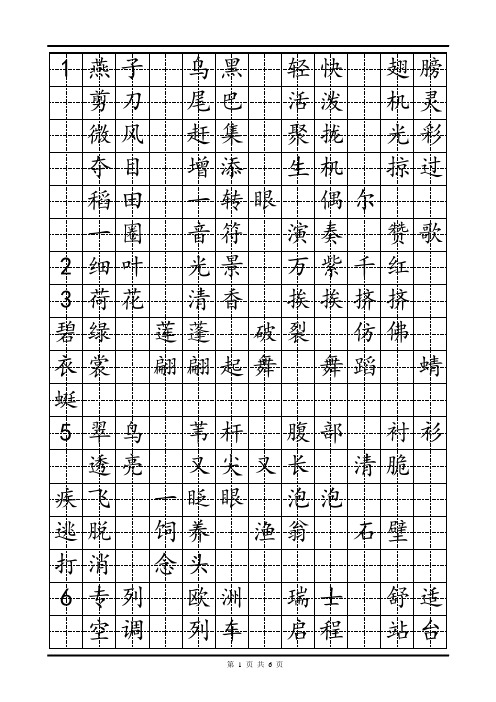 1 燕子 乌黑 轻快 翅膀
剪刀 尾巴 活泼 机灵
微风 赶集 聚拢 光彩
夺目 增添 生机 掠过
稻田 一转眼 偶尔
一圈 音符 演奏 赞歌
2 细叶 光景 万紫千红
3 荷花 清香 挨挨挤挤
碧绿 莲蓬 破裂 仿佛
衣裳 翩翩起舞 舞蹈 蜻
蜓
5 翠鸟 苇杆 腹部 衬衫
透亮 又尖又长 清脆
疾飞 一眨眼 泡泡
逃脱 饲养 渔翁 石壁
打消 念头
6 专列 欧洲 瑞士 舒适
空调 列车 启程 站台
第 1 页 共 6 页